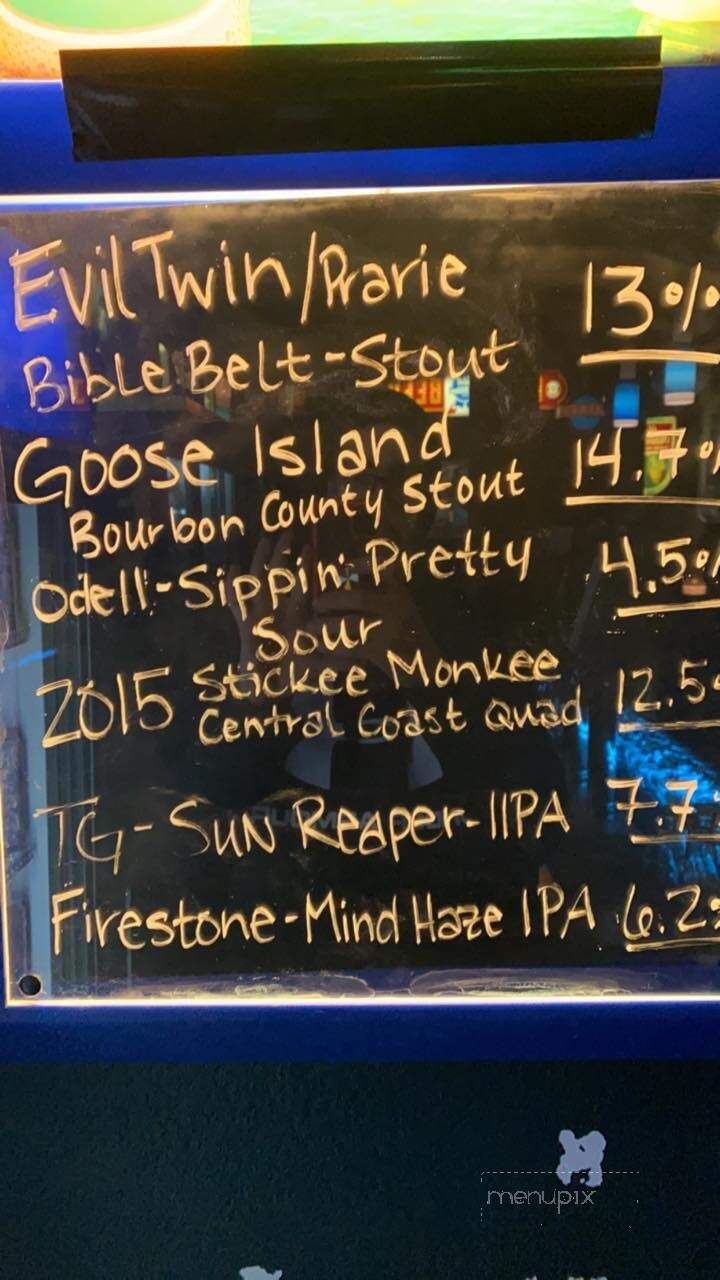 Evil Twin/Prarie 13%
Bible Belt-Stout
Goose Island 14.7%
Bourbon County Stout
Odell-Sippin' Pretty 4.5%
Sour
2015 Stickee Monkee 12.5%
Central Coast Quad
TG-Sun Reaper-IIPA 7.7
Firestone-Mind Haze IPA 6.2%
menupix